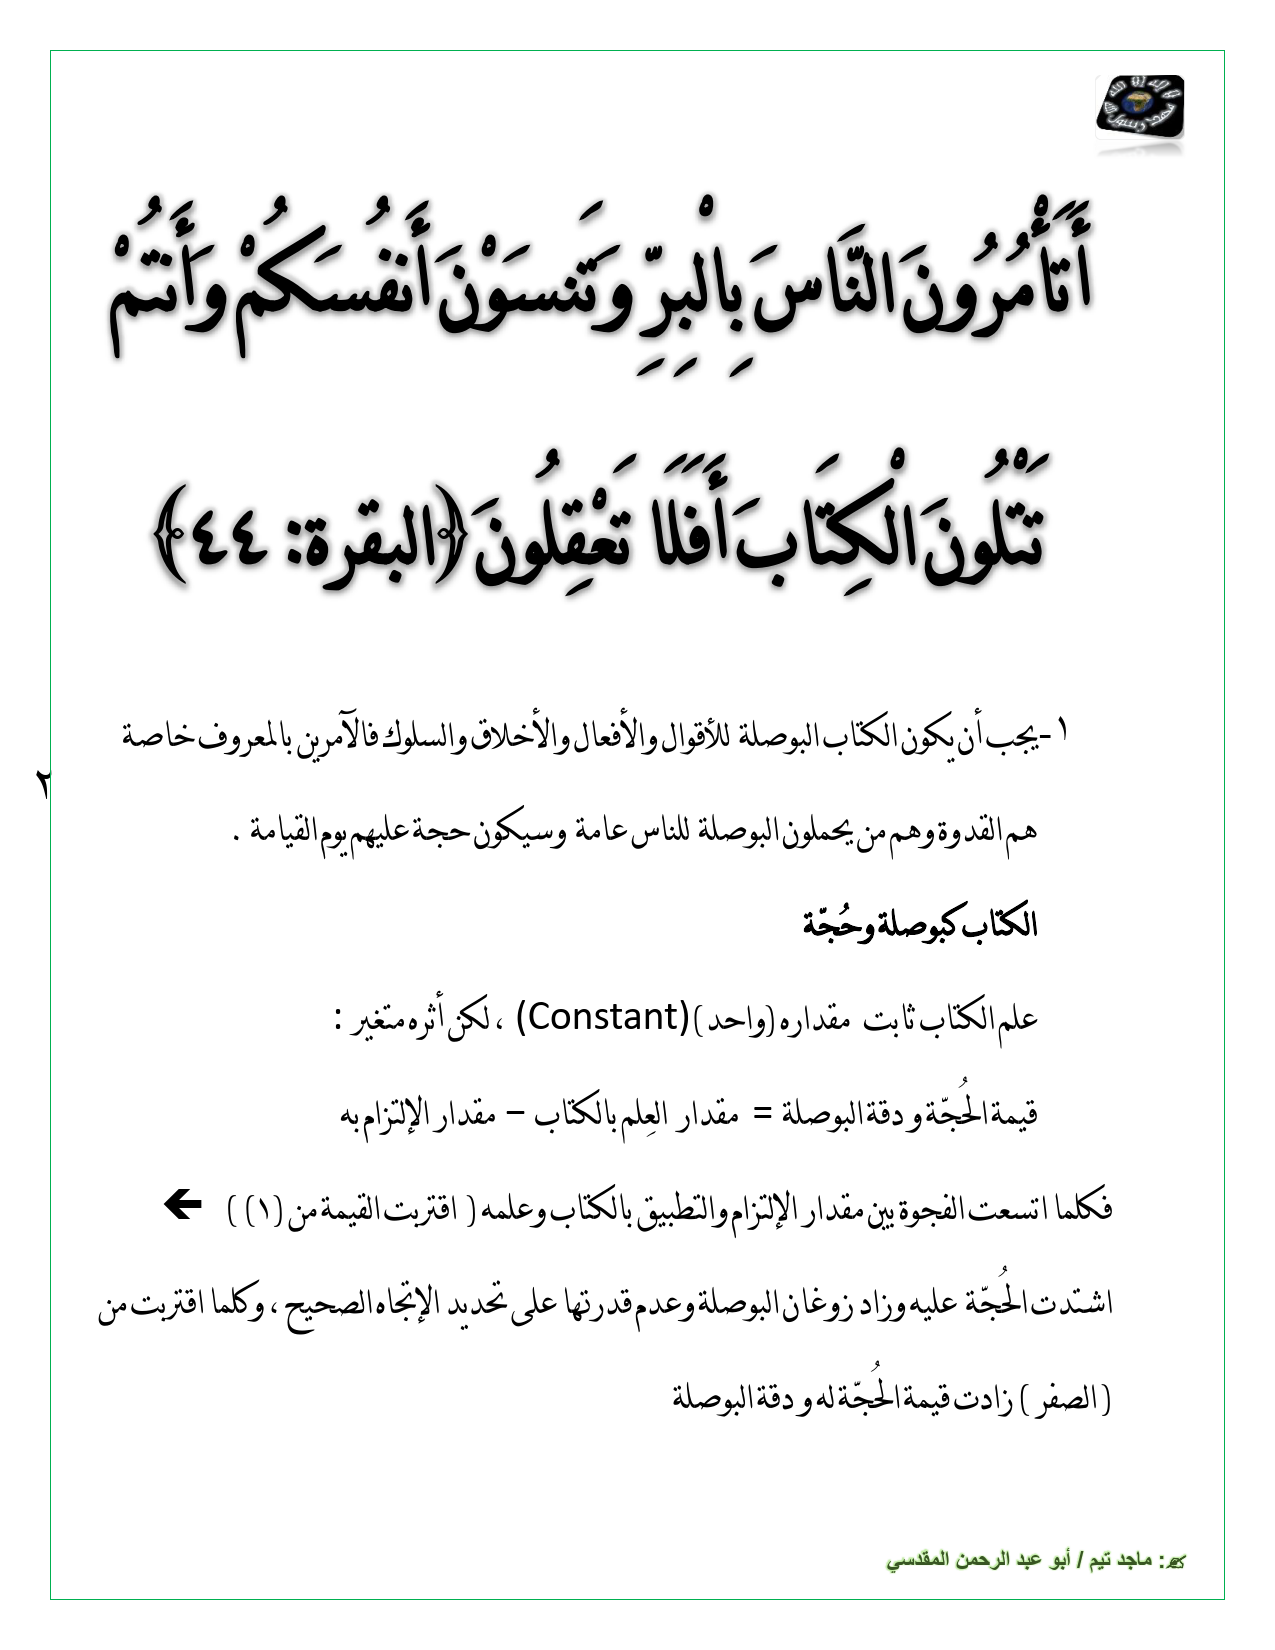 لا إله إلا الله
محمد رسول الله
أَتَأْمُرُونَ النَّاسَ بِالْبِرِّ وَتَنسَوْنَ أَنفُسَكُمْ وَأَنتُمْ
تَتْلُونَ الْكِتَابَ أَفَلَا تَعْقِلُونَ ﴿البقرة: ٤٤﴾
١-يجب أن يكون الكتاب البوصلة للأقوال والأفعال والأخلاق والسلوك فالآمرين بالمعروف خاصة
هم القدوة وهم من يحملون البوصلة للناس عامة وسيكون حجة عليهم يوم القيامة .
٢
الكتاب كبوصلة وحُجّة
علم الكتاب ثابت مقداره (واحد) (Constant) ، لكن أثره متغير :
قيمة الحُجّة و دقة البوصلة = مقدار العِلم بالكتاب – مقدار الإلتزام به
فكلما اتسعت الفجوة بين مقدار الإلتزام والتطبيق بالكتاب وعلمه ( اقتربت القيمة من (١) ) 🡸
اشتدت الحُجّة عليه وزاد زوغان البوصلة وعدم قدرتها على تحديد الإتجاه الصحيح ، وكلما اقتربت من
( الصفر ) زادت قيمة الحُجّة له و دقة البوصلة
✍: ماجد تيم / أبو عبد الرحمن المقدسي